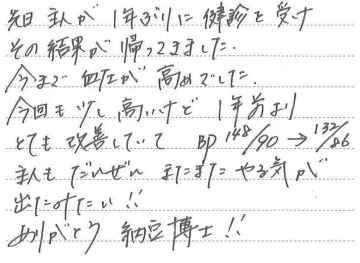 先日 主人が 1年ぶりに 健診を受け
その結果が 帰ってきました.
今まで 血圧が 高めでした.
今回も少し高いけど 1年前より
とても 改善していて BP 148/90 → 132/86
主人も だんぜん まだまだ やる気が
出たみたい!!
ありがとう 納豆博士!!